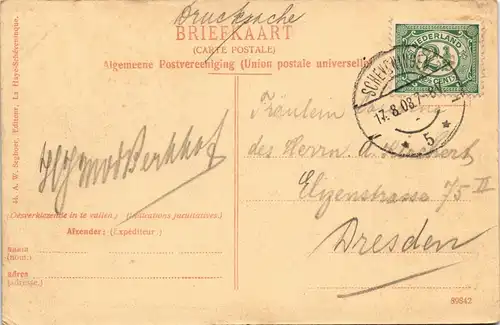 Drucksache
BRIEFKAART
(CARTE POSTALE)
Algemeene Postvereeniging (Union postale universelle)
NEDERLAND
2½
CENT
SCHEVENINGEN
17.8.08.7-8
5
Fräulein
des Herrn
Elisenstrasse 75 II
Dresden
(Desverkiezende in te vullen.) (Indications facultatives.)
Afzender: (Expéditeur.)
NAAM
(NOM)
ADRES
(ADRESSE.)
A. W. Segboer, Editeur, La Haye-Schéveningue.
89842